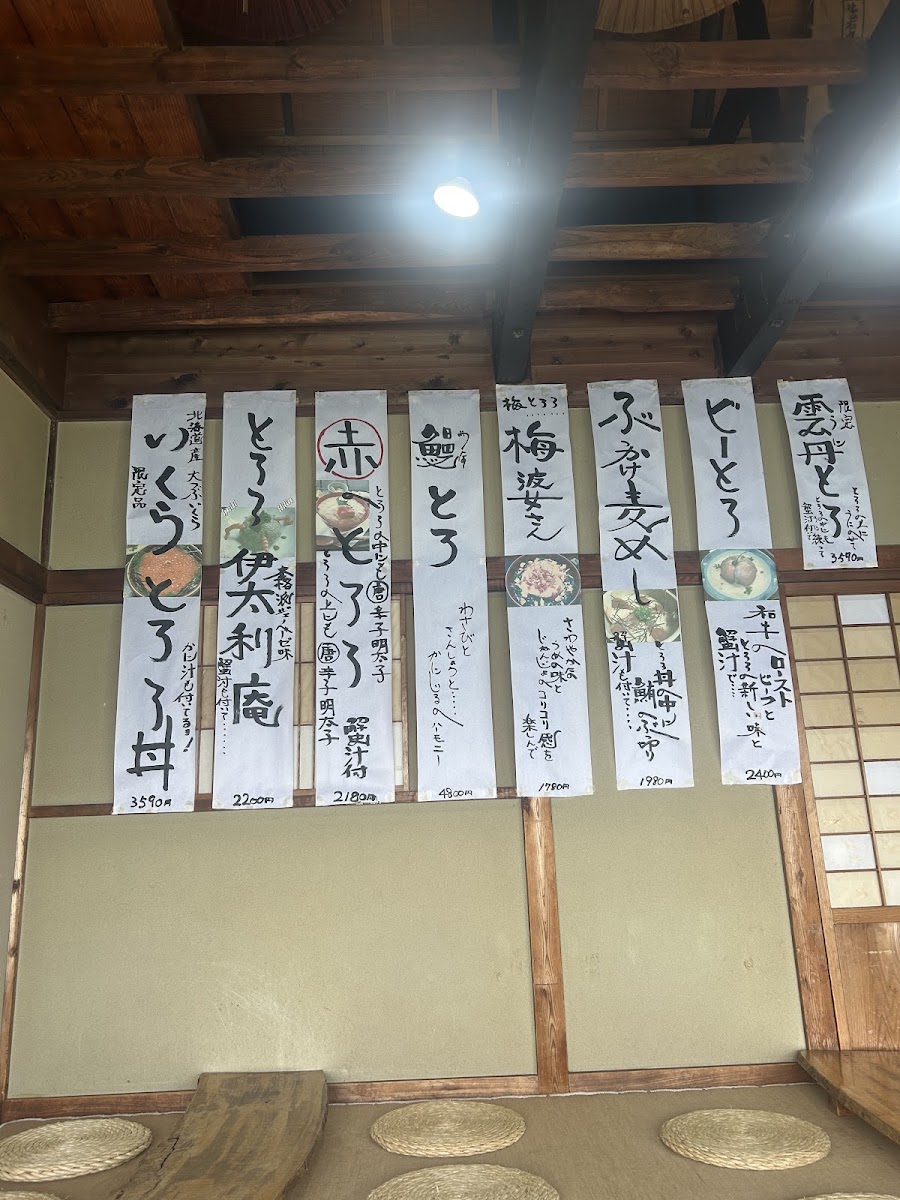 限定
うに
雲丹とろ
とろろの上に
うにのせて
蟹汁付て
3590円
ビーとろ
和牛の
ローストビーフと
とろろの新しい味と
蟹汁で…
2400円
ぶっかけ麦めし
とろろ丼の中に
鮪のぶつ切り
蟹汁も付いて…
1980円
梅とろろ……
梅婆さん
さわやかな
うめの味と
じゃこのコリコリ感を
楽しんで
1780円
鰻とろ
わさびと
さんしょうと…
かにじるのハーモニー
4800円
赤のとろろ
とろろの中にも唐辛子明太子
とろろの上にも唐辛子明太子
蟹汁付
2180円
とろろ伊太利庵
本格派ジェノベーゼ味
蟹汁も付いて……
2200円
北海道産 大つぶいくら
いくらとろろ丼
限定品
かに汁も付いてるョ!
3590円